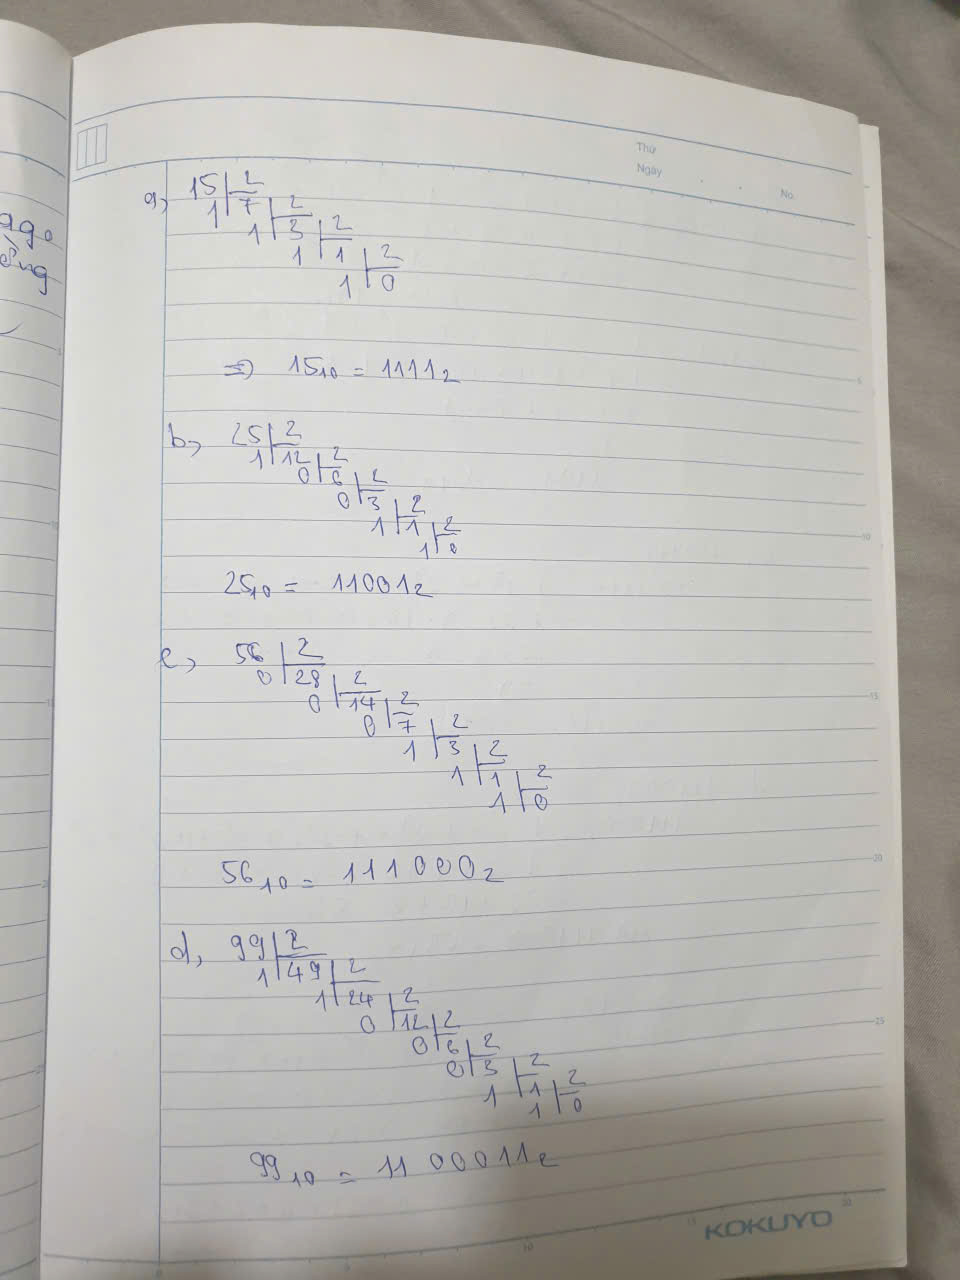 Thứ
Ngày . . No
ago
ếng
a, 15 2
1 7 2
1 3 2
1 1 2
1 0
=> 15₁₀ = 1111₂
b, 25 2
1 12 2
0 6 2
0 3 2
1 1 2
1 0
25₁₀ = 11001₂
c, 56 2
0 28 2
0 14 2
0 7 2
1 3 2
1 1 2
1 0
56₁₀ = 111000₂
d, 99 2
1 49 2
1 24 2
0 12 2
0 6 2
0 3 2
1 1 2
1 0
99₁₀ = 1100011₂
5
10
15
20
25
KOKUYO